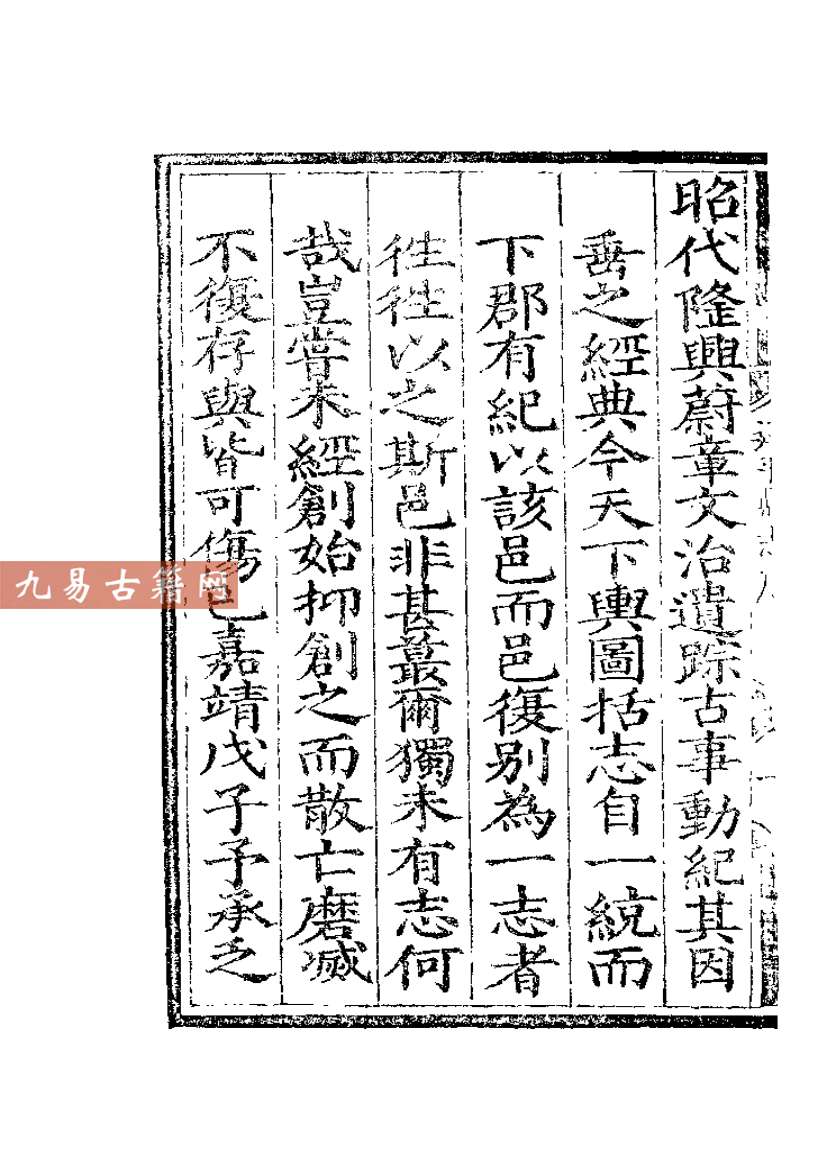 昭代隆興蔚章文治遺踪古事動紀其因
垂之經典今天下輿圖括志自一統而
下郡有紀以該邑而邑復别為一志者
徃徃以之斯邑非甚蕞爾獨未有志何
哉豈嘗未經創始抑創之而散亡磨滅
不復存與皆可傷已嘉靖戊子予承乏
九易古籍网